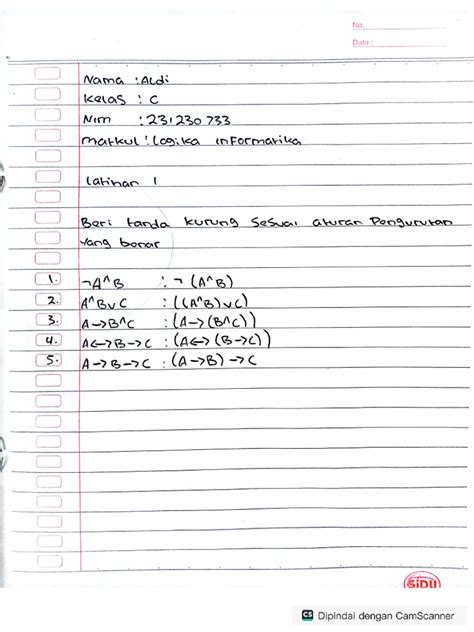 No.
Date :
Nama : Aldi
Kelas : C
Nim : 231230733
Matkul : Logika informatika
Latihan 1
Beri tanda kurung sesuai aturan Pengurutan
yang benar
1. ¬A^B : ¬ (A^B)
2. A^BvC : ((A^B)vC)
3. A->B^C : (A->(B^C))
4. A<->B->C : (A<->(B->C))
5. A->B->C : (A->B)->C
SIDU
CS Dipindai dengan CamScanner